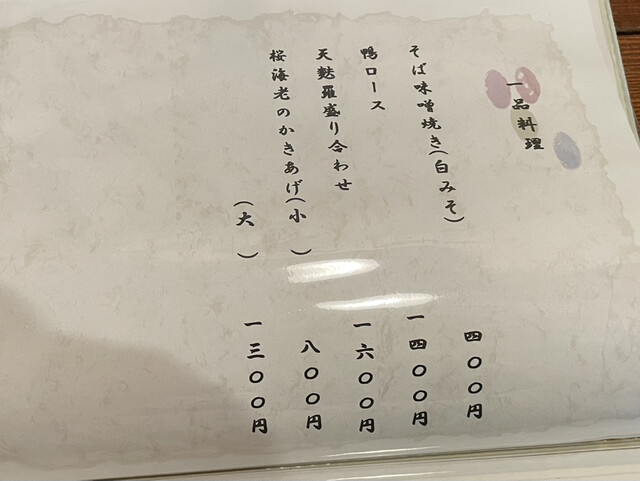 一品料理
そば味噌焼き(白みそ)
四〇〇円
鴨ロース
一四〇〇円
天麩羅盛り合わせ
一六〇〇円
桜海老のかきあげ(小)
八〇〇円
(大)
一三〇〇円